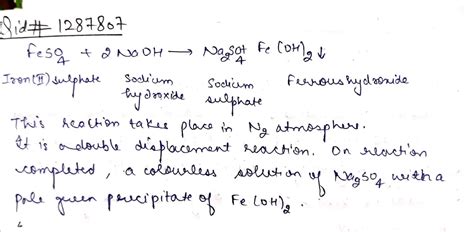 Sid# 1287807
FeSO4 + 2 NaOH → Na2SO4 + Fe(OH)2↓
Iron(II) sulphate Sodium hydroxide Sodium sulphate Ferrous hydroxide
This reaction takes place in N2 atmosphere.
It is a double displacement reaction. On reaction
completed, a colourless solution of Na2SO4 with a
pale green precipitate of Fe(OH)2.